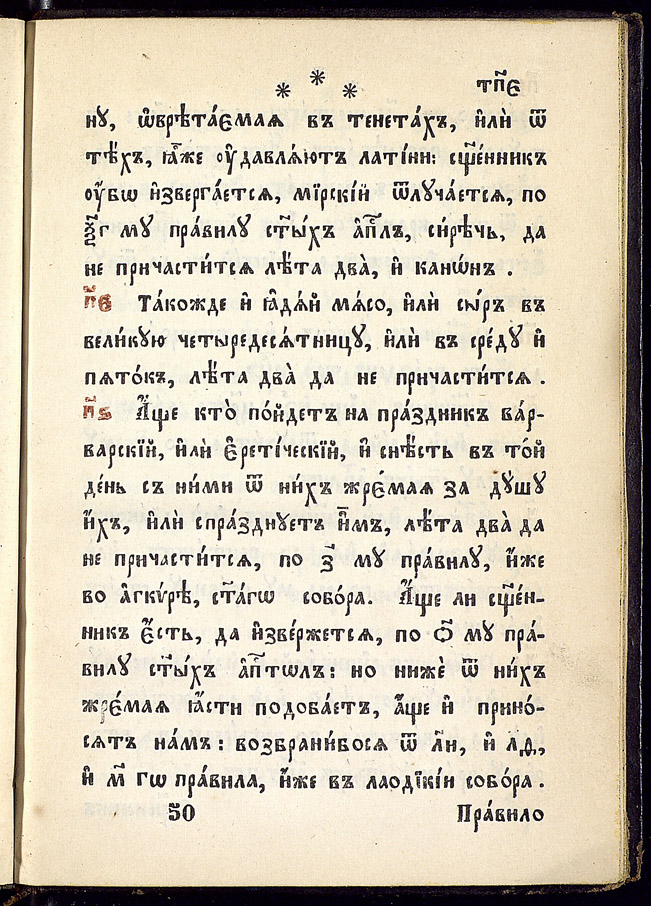 * * * тп҃е
ну, ѡ҆брѣта́емаѧ въ тенета́хъ, и҆лѝ ѿ
тѣ́хъ, ꙗ҆̀же ᲂу҆давлѧ́ютъ лати́ни: сщ҃е́нникъ
ᲂу҆́бѡ и҆зверга́етсѧ, мїрскі́й ѿлуча́етсѧ, по
ѯ҃г му пра́вилу ст҃ы́хъ а҆пⷭ҇лъ, си́рѣчь, да
не причасти́тсѧ лѣ́та два̀, и҆ канѡ́нъ .
п҃е Та́кожде и҆ ꙗ҆ды́й мѧ́со, и҆лѝ сы́ръ въ
вели́кую четыредесѧ́тницу, и҆лѝ въ сре́ду и҆
пѧто́къ, лѣ́та два̀ да не причасти́тсѧ .
п҃ѕ А҆́ще кто̀ по́йдетъ на пра́здникъ ва́р-
варскїй, и҆лѝ є҆рети́ческїй, и҆ снѣ́сть въ то́й
де́нь съ ни́ми ѿ ни́хъ жре́маѧ за душу
и҆́хъ, и҆лѝ спра́зднуетъ и҆̀мъ, лѣ́та два̀ да
не причасти́тсѧ, по з҃ му пра́вилу, и҆́же
во а҆гки́рѣ, ст҃а́гѡ собо́ра. А҆́ще ли сщ҃е́н-
никъ є҆́сть, да и҆зве́ржетсѧ, по ѻ҃ му пра́-
вилу ст҃ы́хъ а҆пⷭ҇тѡлъ: но нижѐ ѿ ни́хъ
жре́маѧ ꙗ҆́сти подоба́етъ, а҆́ще и҆ прино́-
сѧтъ на́мъ: возбрани́босѧ ѿ л҃и, и҆ л҃ѳ,
и҆ м҃ гѡ пра́вила, и҆́же въ лаодїкі́и собо́ра .
50 Пра́вило